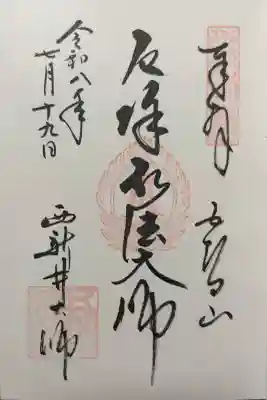 奉拝
五智山
厄除弘法大師
令和八年
七月十九日
西新井大師